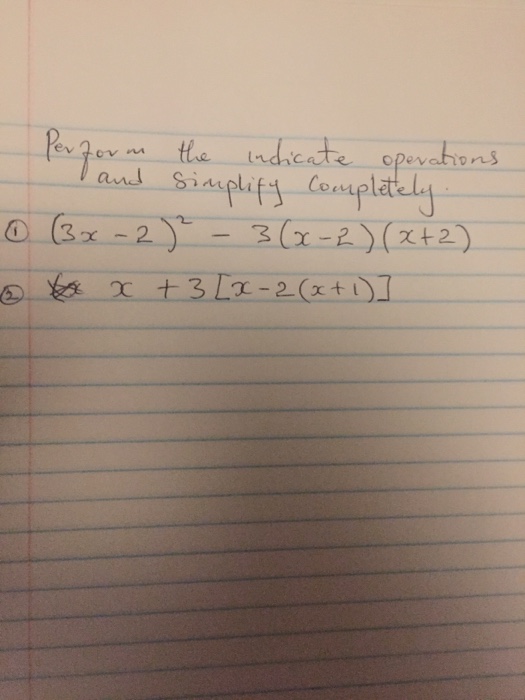 Perform the indicate operations
and Simplify Completely.
① (3x - 2)² - 3(x-2)(x+2)
② x + 3[x-2(x+1)]